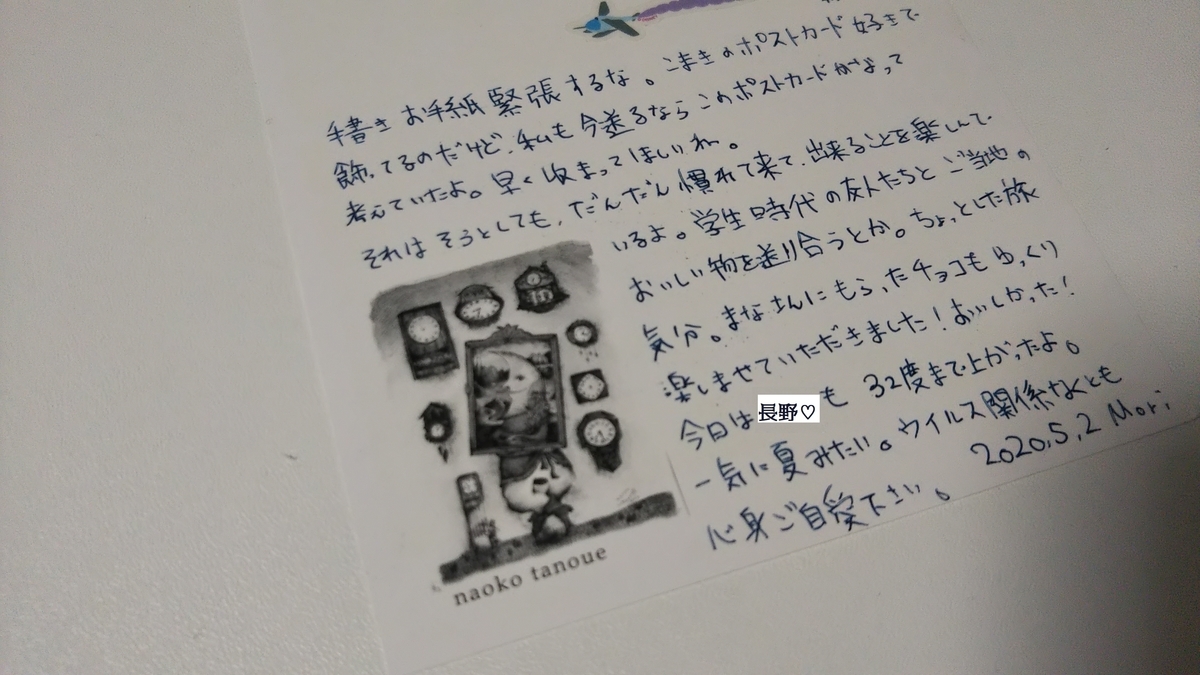 手書きお手紙緊張するな。こまきのポストカード好きで
飾ってるのだけど、私も今送るならこのポストカードがよって
考えていたよ。早く収まってほしいね。
それはそうとしても、だんだん慣れて来て、出来ることを楽しんで
いるよ。学生時代の友人たちとご当地の
おいしい物を送り合うとか。ちょっとした旅
気分。まなさんにもらったチョコもゆっくり
楽しませていただきました！おいしかった！
今日は長野♡も 32度まで上がったよ。
一気に夏みたい。ウイルス関係なくとも
心身ご自愛下さい。
2020.5.2 Mori
naoko tanoue